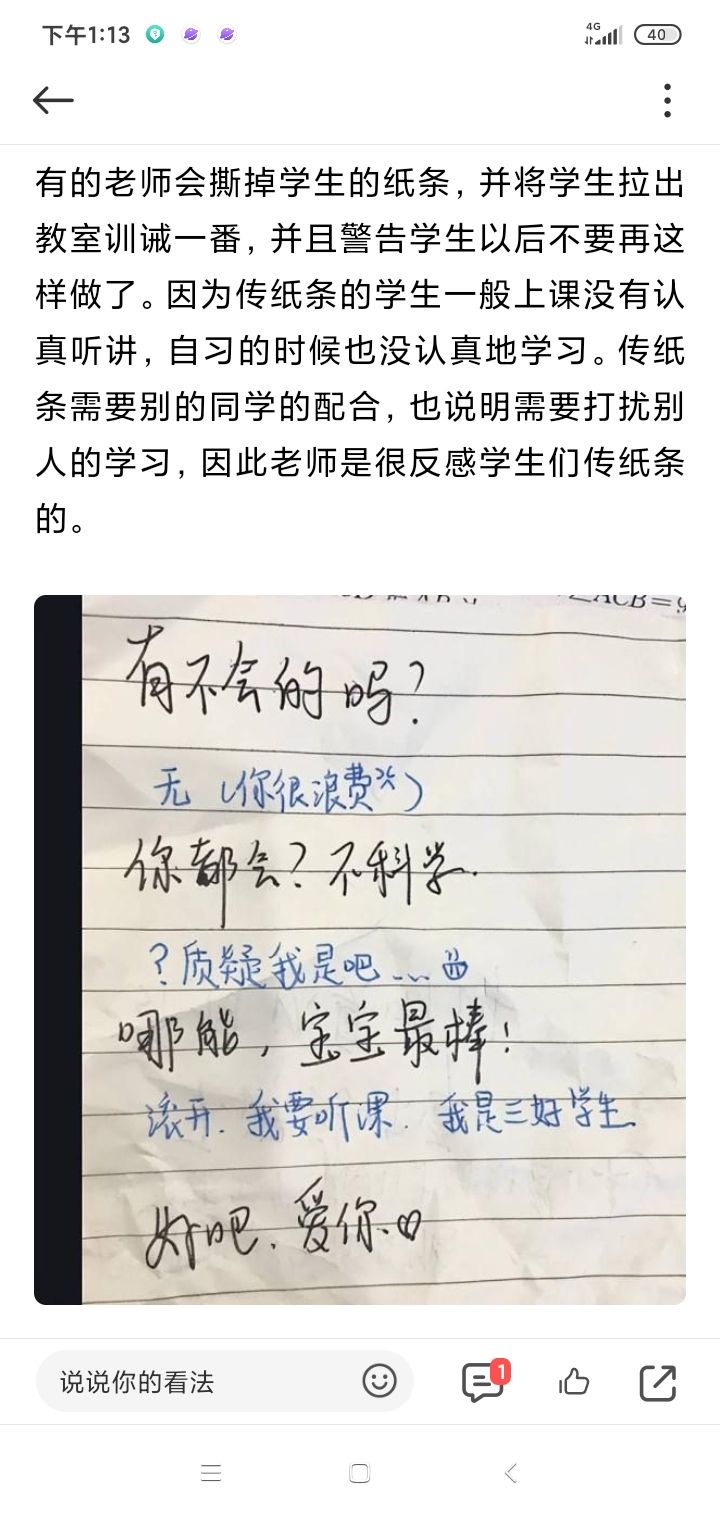 下午1:13
4G
40
有的老师会撕掉学生的纸条，并将学生拉出
教室训诫一番，并且警告学生以后不要再这
样做了。因为传纸条的学生一般上课没有认
真听讲，自习的时候也没认真地学习。传纸
条需要别的同学的配合，也说明需要打扰别
人的学习，因此老师是很反感学生们传纸条
的。
∠ACB=9
有不会的吗？
无（你很浪费）
你都会？不科学.
？质疑我是吧...
哪能，宝宝最棒！
滚开.我要听课.我是三好学生.
好吧.爱你.♡
说说你的看法
1